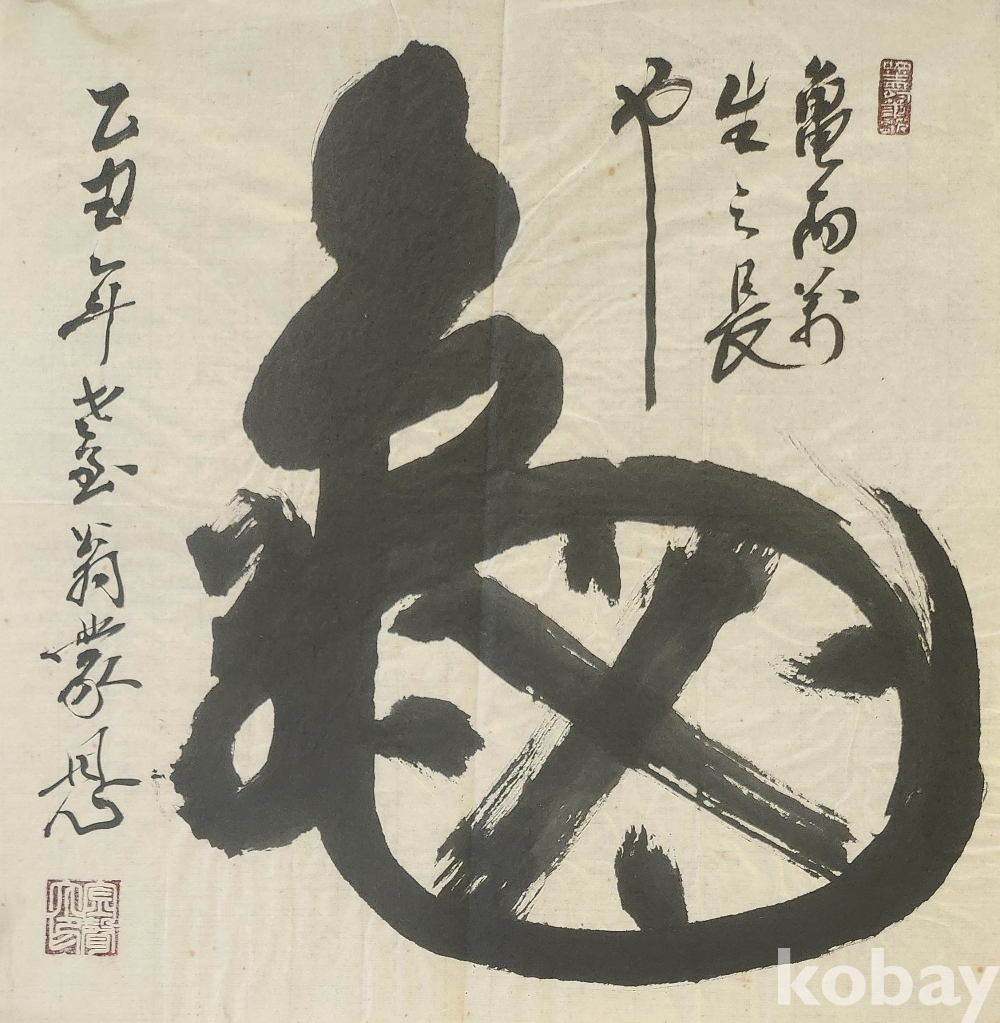 龜
龜而萬
生之長
也
乙丑年 七臺翁蒙恩
kobay